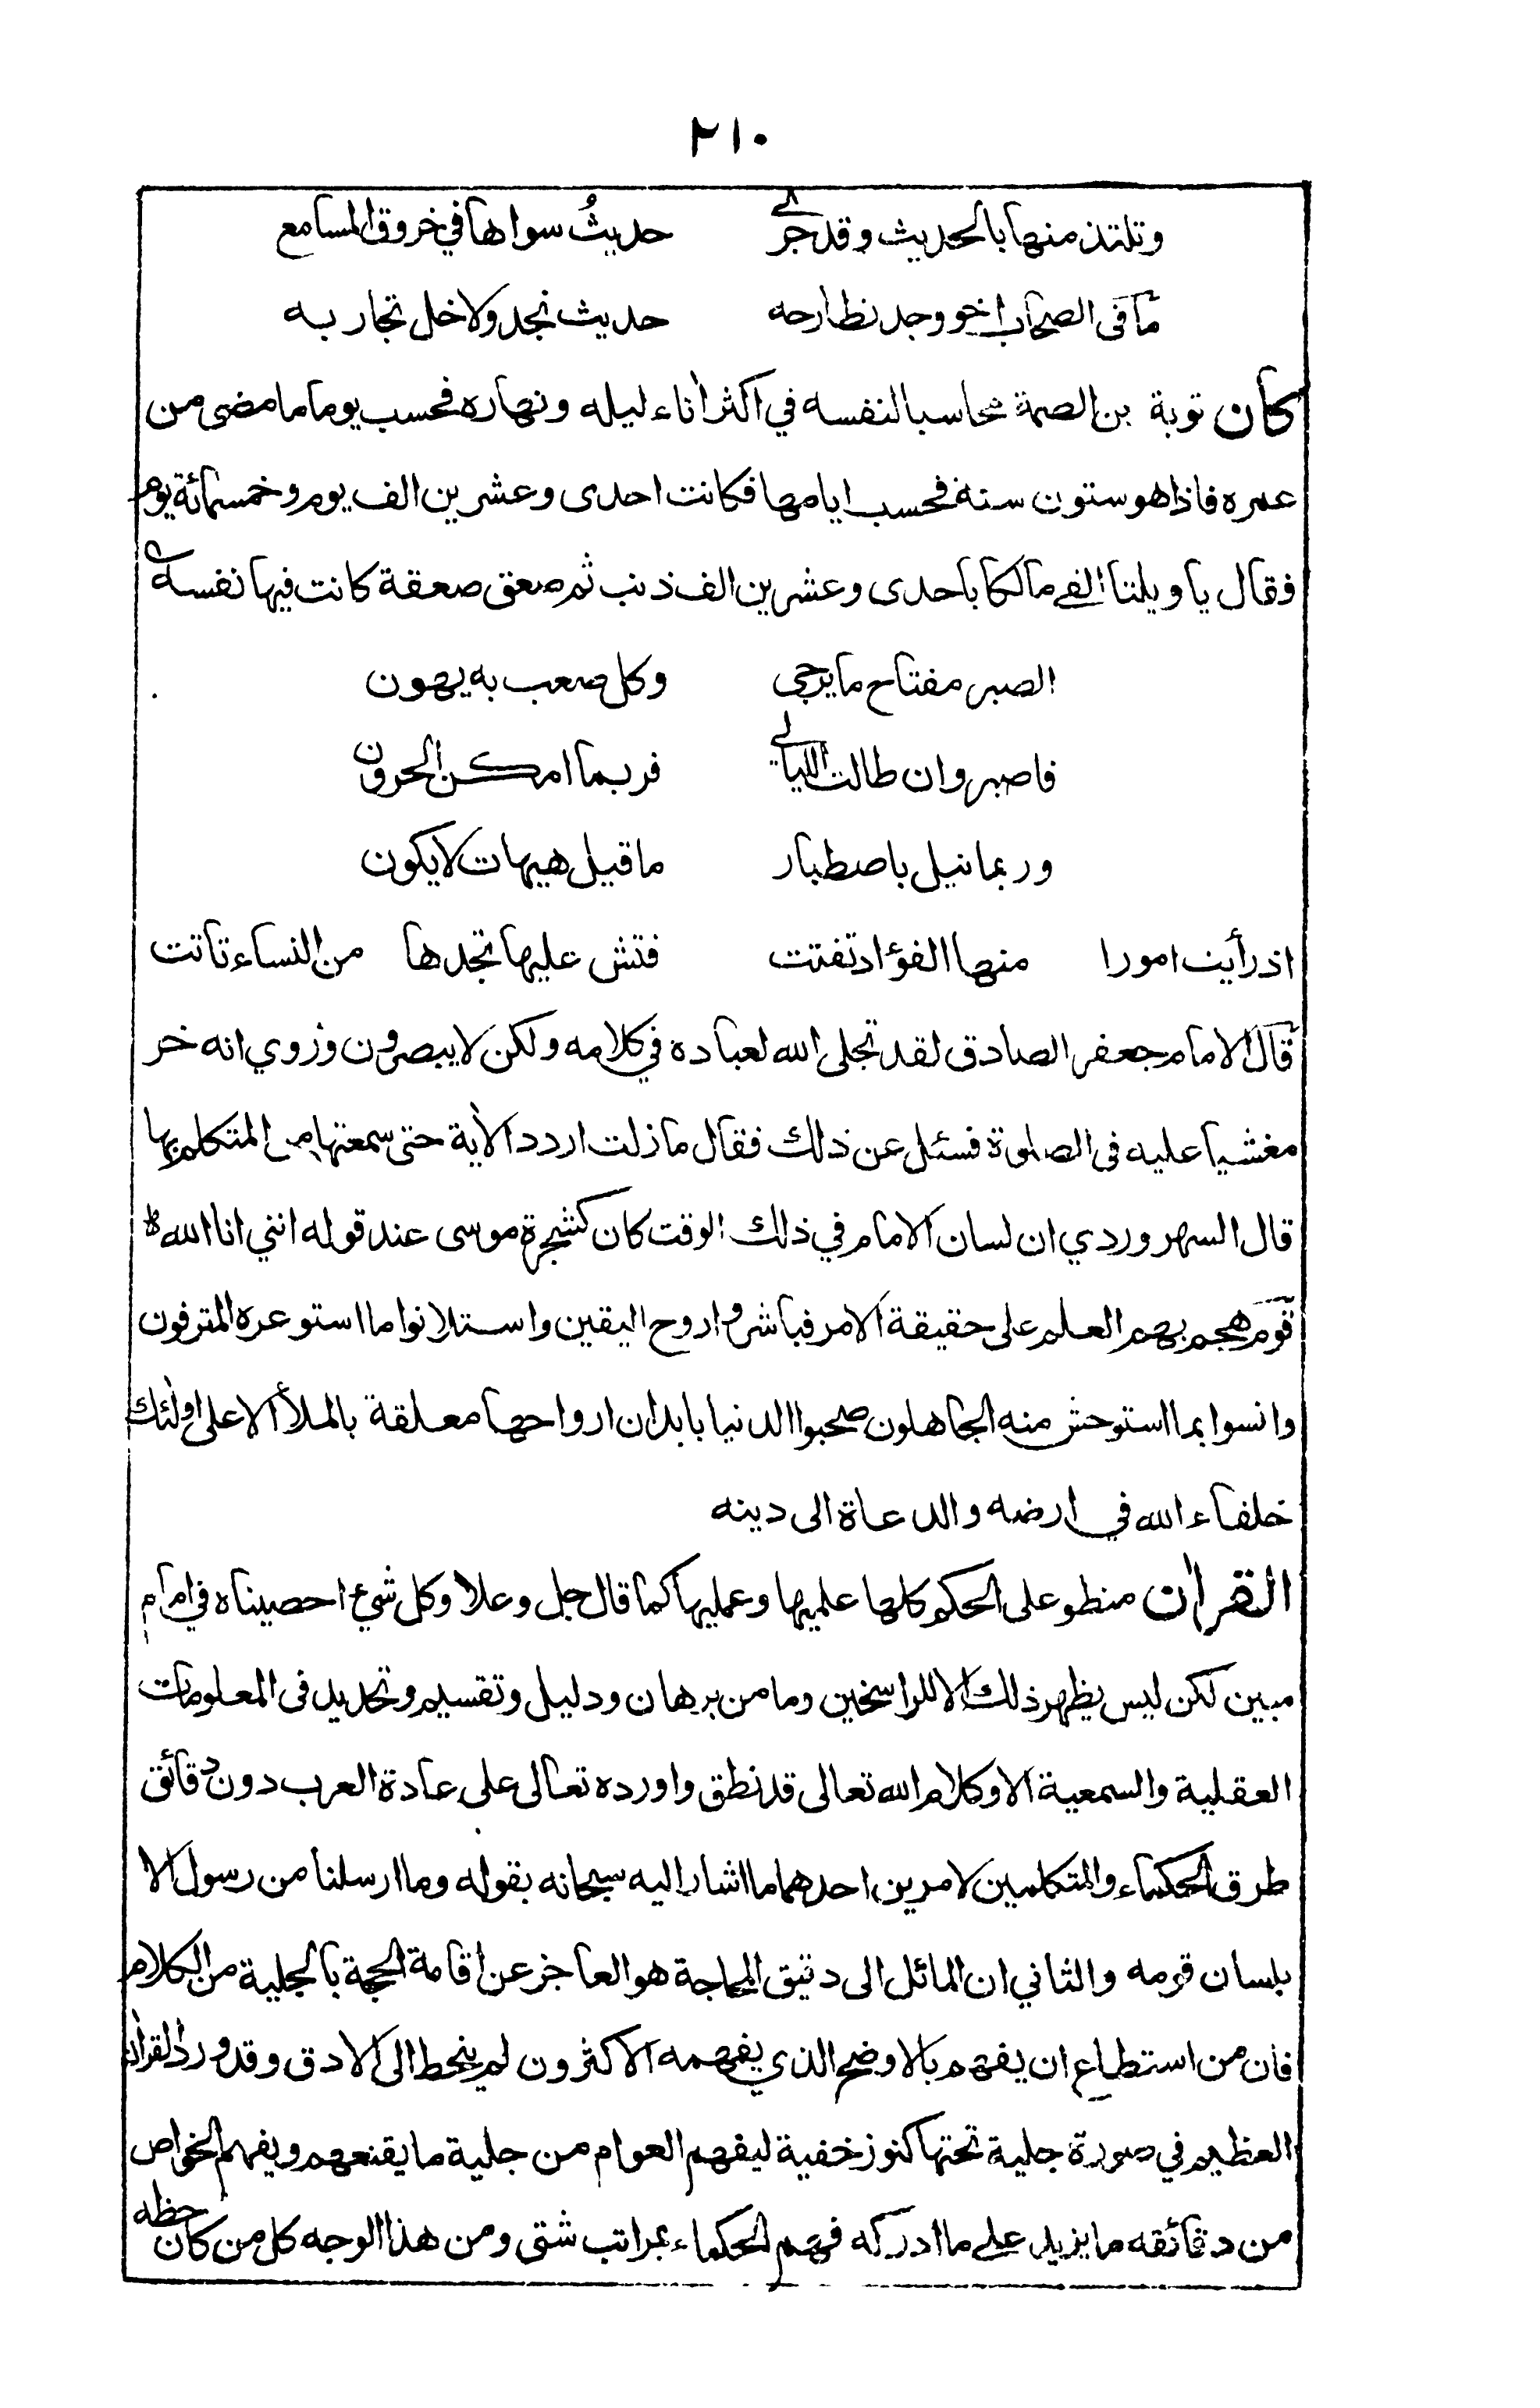 ٢١٠
وتلتذ منها بالحديث وقد جرى حديثُ سواها في خروق المسامع
ما في الصحاب اخو وجد نطارحه حديث نجد ولا خل نجاريه
كان توبة بن الصمة محاسبا لنفسه في اكثر اناء ليله ونهاره فحسب يوما ما مضى من
عمره فاذا هو ستون سنة فحسب ايامها فكانت احدى وعشرين الف يوم وخمسمائة يوم
فقال يا ويلتا القى مالكا باحدى وعشرين الف ذنب ثم صعق صعقة كانت فيها نفسه
الصبر مفتاح ما يرجى وكل صعب به يهون
فاصبر وان طالت الليالي فربما امكن الحرون
وربما نيل باصطبار ما قيل هيهات لا يكون
اذ رأيت امورا منها الفؤاد تفتت فتش عليها تجدها من النساء تاتت
قال الامام جعفر الصادق لقد تجلى الله لعباده في كلامه ولكن لا يبصرون وروي انه خر
مغشيا عليه في الصلوة فسئل عن ذلك فقال ما زلت اردد الاية حتى سمعتها من المتكلم بها
قال السهروردي ان لسان الامام في ذلك الوقت كان كشجرة موسى عند قوله انني انا الله
قوم هجم بهم العلم على حقيقة الامر فباشروا روح اليقين واستلانوا ما استوعره المترفون
وانسوا بما استوحش منه الجاهلون صحبوا الدنيا بابدان ارواحها معلقة بالملأ الاعلى اولئك
خلفاء الله في ارضه والدعاة الى دينه
القران منطو على الحكم كلها علميها وعمليها كما قال جل وعلا وكل شيء احصيناه في امام
مبين لكن ليس يظهر ذلك الا للراسخين وما من برهان ودليل وتقسيم وتحديد في المعلومات
العقلية والسمعية الا وكلام الله تعالى قد نطق واورده تعالى على عادة العرب دون دقائق
طرق الحكماء والمتكلمين لامرين احدهما ما اشار اليه سبحانه بقوله وما ارسلنا من رسول الا
بلسان قومه والثاني ان المائل الى دقيق المحاجة هو العاجز عن اقامة الحجة بالجلية من الكلام
فان من استطاع ان يفهم بالاوضح الذي يفهمه الاكثرون لم ينحط الى الادق وقد ورد القران
العظيم في صورة جلية تحتها كنوز خفية ليفهم العوام من جلية ما يقنعهم ويفهم الخواص
من دقائقه ما يزيد على ما ادركه فهم الحكماء بمراتب شتى ومن هذا الوجه كل من كان حظه